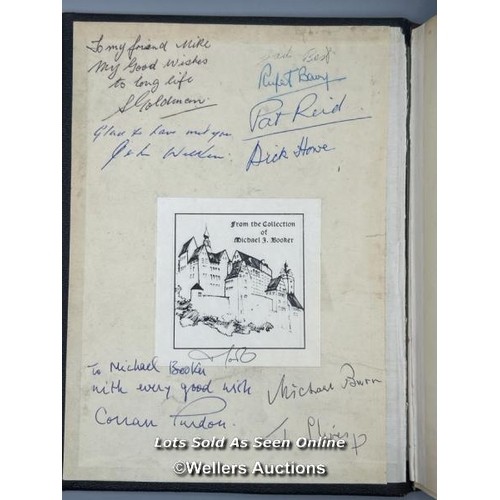 To my friend Mike
My Good Wishes
to long life
S Goldman
Glad to have met you
Jack Best
Rupert Barry
Pat Reid
Dick Howe
From the Collection
of
Michael J. Booker
To Michael Booker
with every good wish
Corran Purdon.
Michael Burn
Lots Sold As Seen Online
©Wellers Auctions